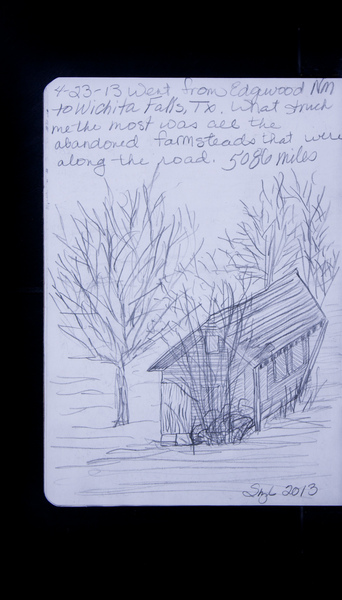 4-23-13 Went from Edgwood Nm
to Wichita Falls, Tx. What struck
me the most was all the
abandoned farmsteads that were
along the road. 5086 miles
2013